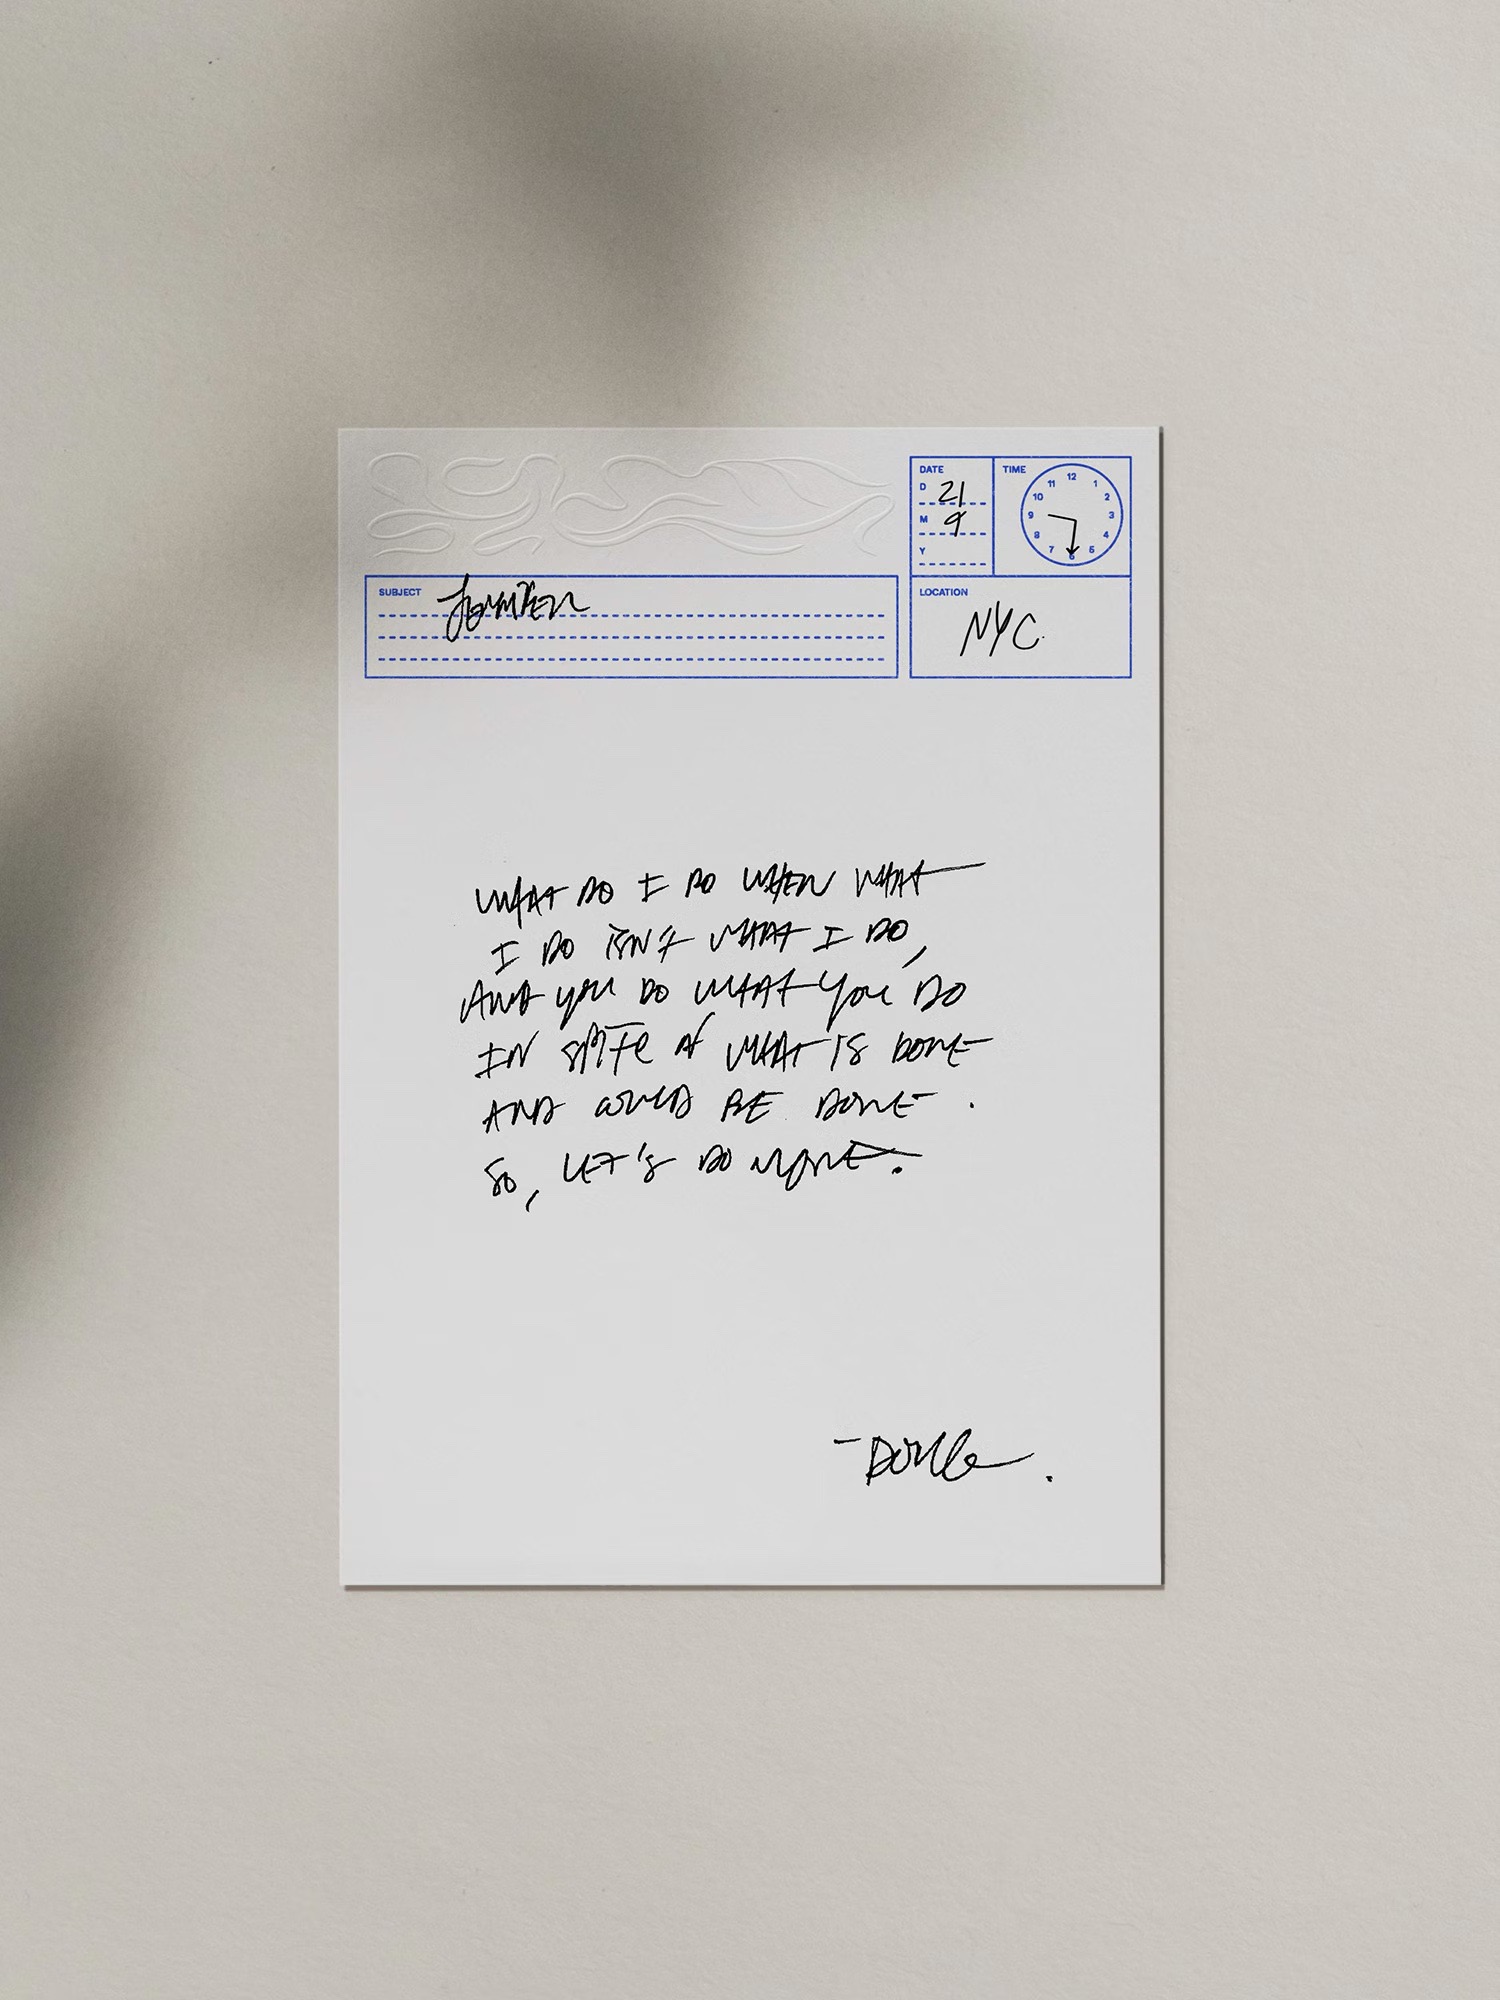 DATE
D 21
M 9
Y
TIME
12
11 1
10 2
9 3
8 4
7 5
6
SUBJECT
LOCATION
NYC.
WHAT DO I DO WHEN WHAT
I DO ISN'T WHAT I DO,
AND YOU DO WHAT YOU DO
IN SPITE OF WHAT IS DONE
AND COULD BE DONE.
SO, LET'S DO MORE.